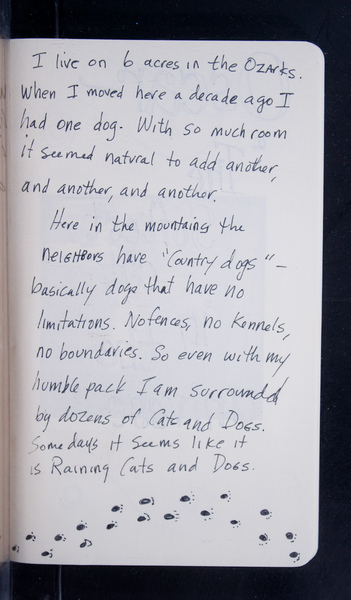 I live on 6 acres in the Ozarks.
When I moved here a decade ago I
had one dog. With so much room
it seemed natural to add another,
and another, and another.
Here in the mountains the
neighbors have "Country dogs" –
basically dogs that have no
limitations. No fences, no kennels,
no boundaries. So even with my
humble pack I am surrounded
by dozens of Cats and Dogs.
Some days it seems like it
is Raining Cats and Dogs.